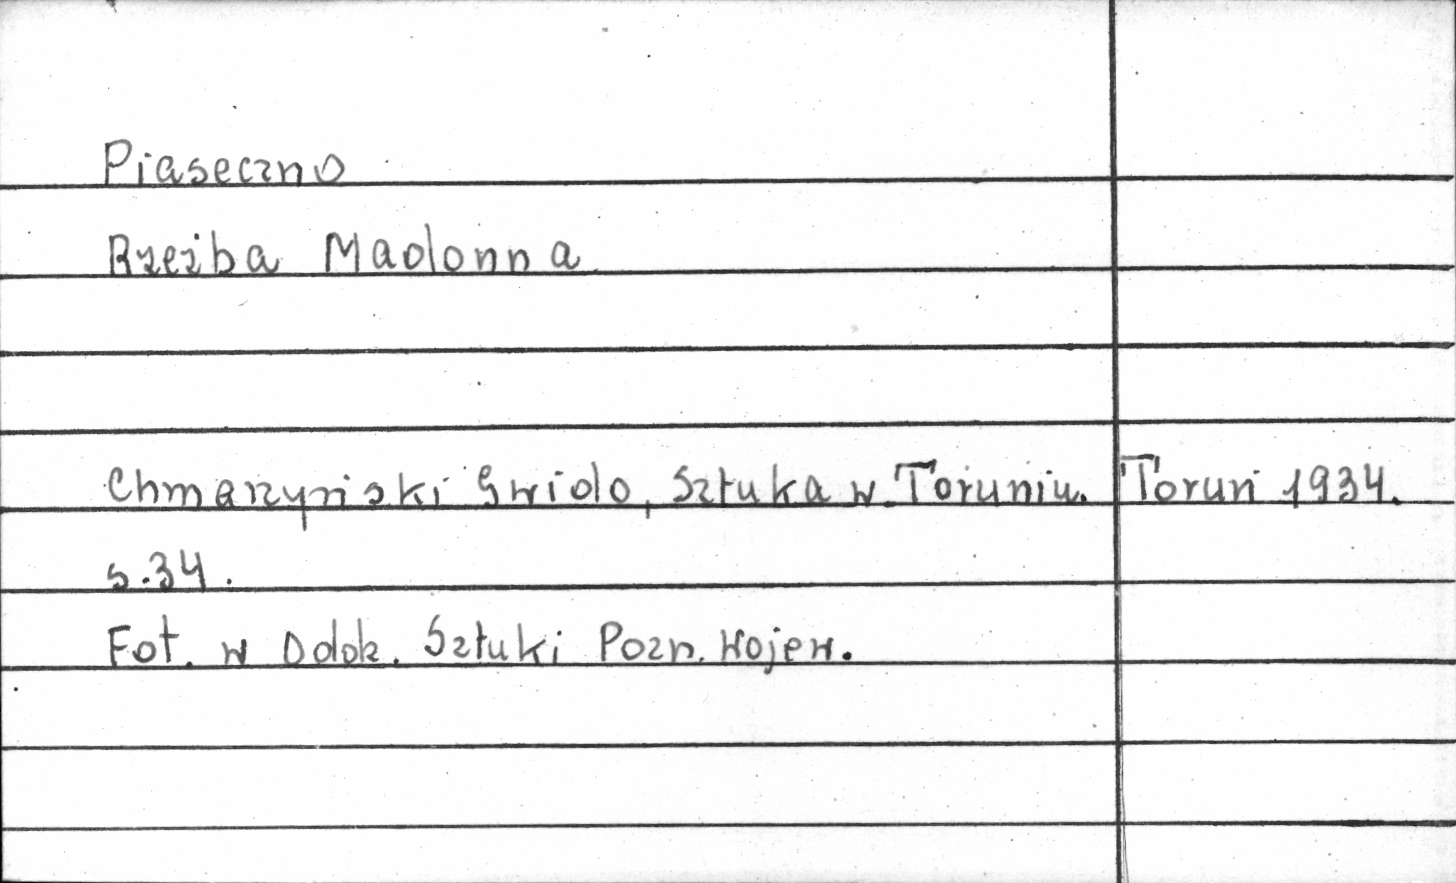 Piaseczno
Rzeźba Madonna
Chmarzyński Gwido, Sztuka w Toruniu. Toruń 1934.
s.34.
Fot. w Dolok. Sztuki Pozn. Wojew.